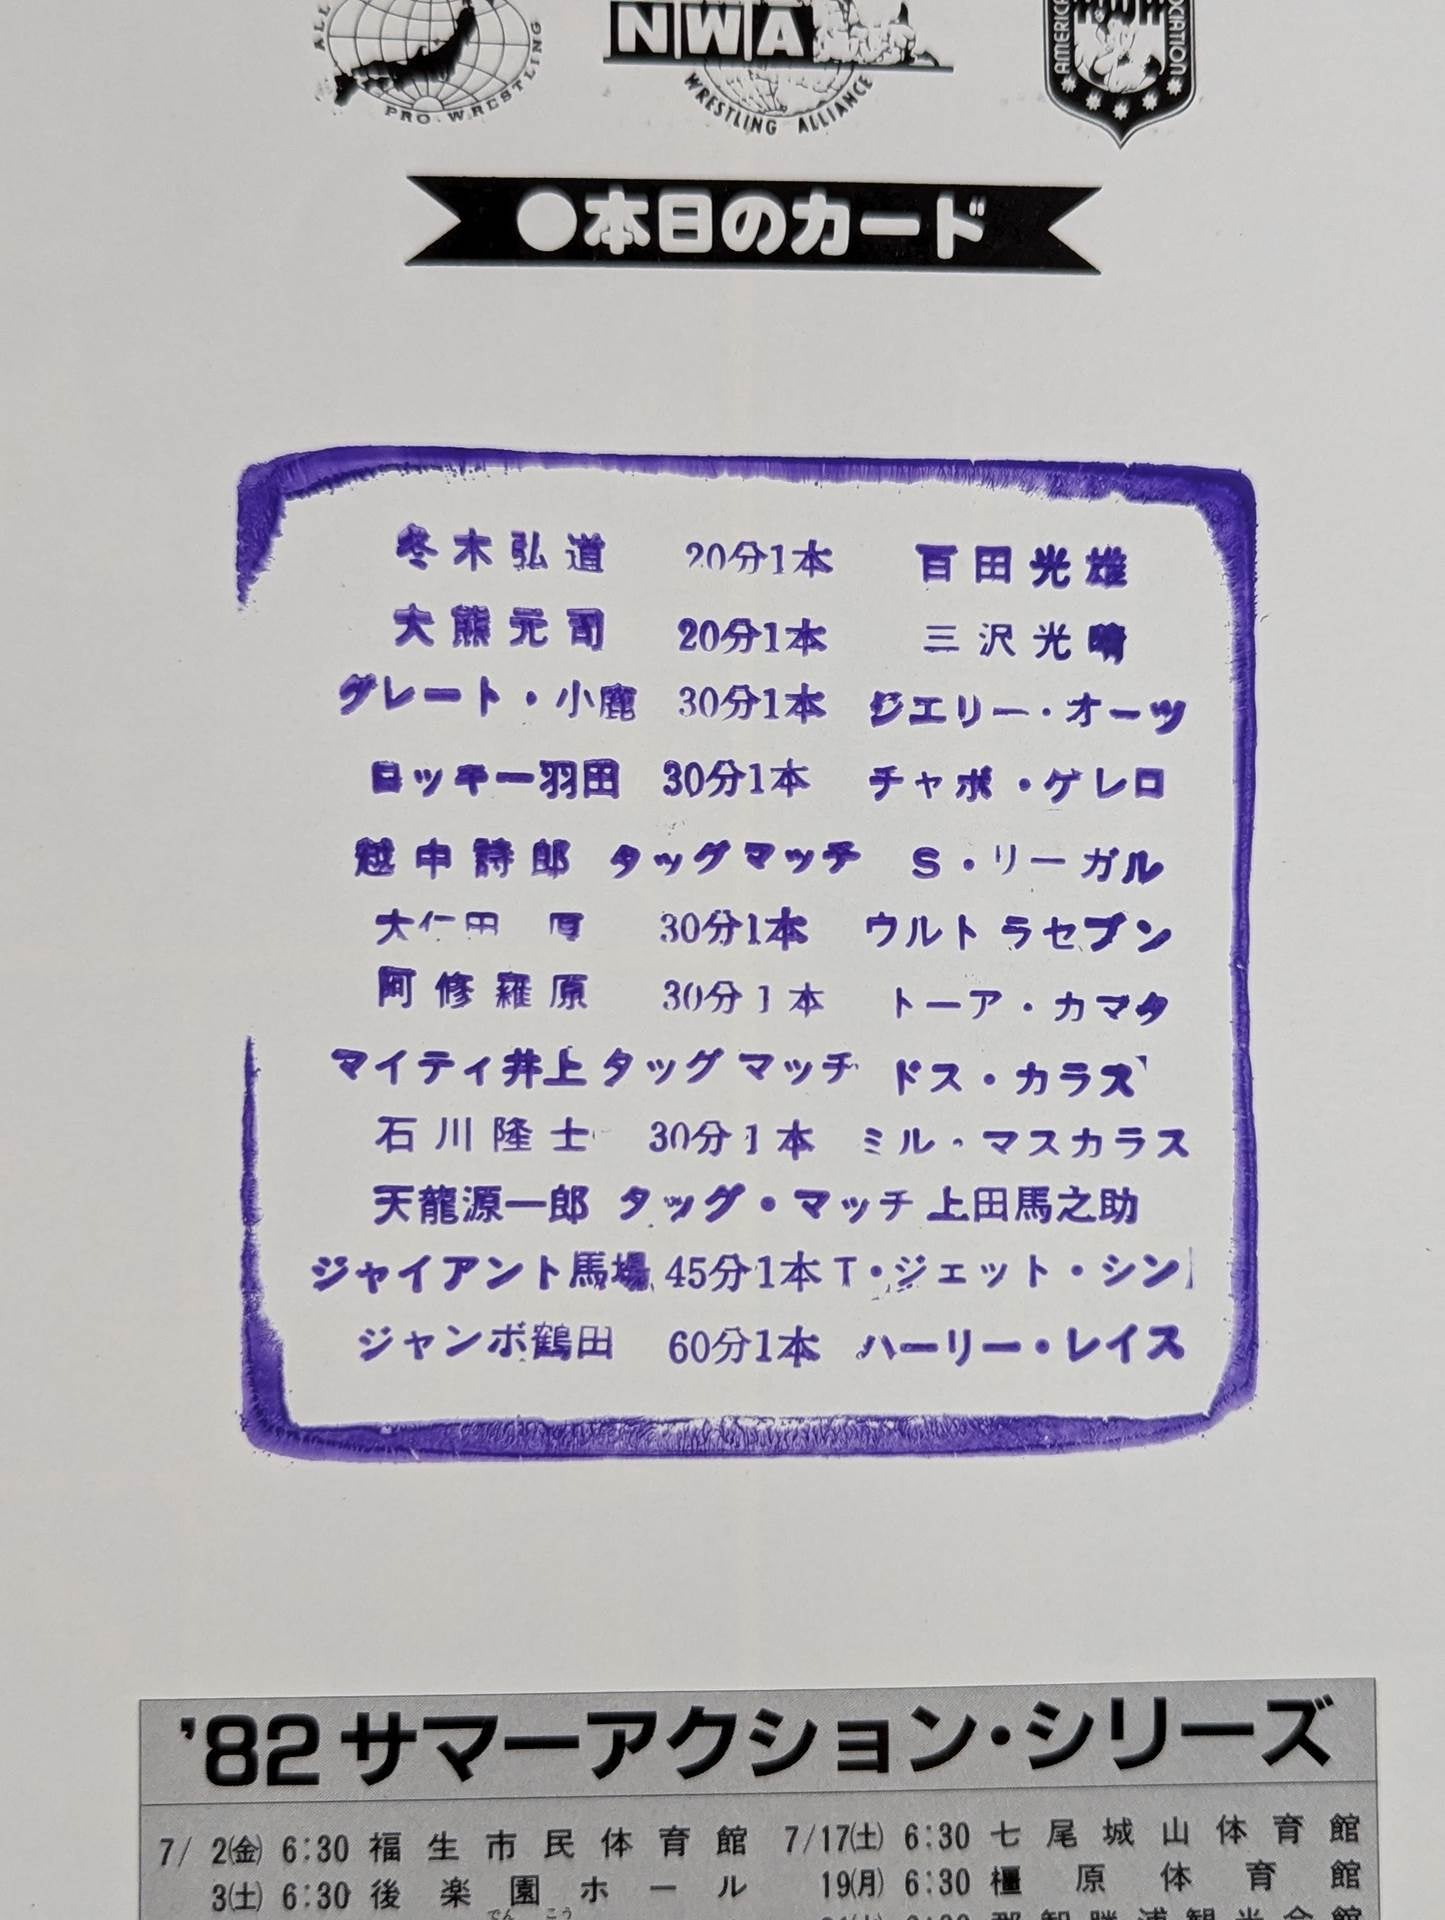 ALL
PRO. WRESTLING
NWA
WRESTLING ALLIANCE
AMERICA
OCIATION
●本日のカード
冬木弘道 20分1本 百田光雄
大熊元司 20分1本 三沢光晴
グレート・小鹿 30分1本 ジエリー・オーツ
ロッキー羽田 30分1本 チャボ・ゲレロ
越中詩郎 タッグマッチ S・リーガル
大仁田 厚 30分1本 ウルトラセブン
阿修羅原 30分1本 トーア・カマタ
マイティ井上 タッグマッチ ドス・カラス
石川隆士 30分1本 ミル・マスカラス
天龍源一郎 タッグ・マッチ 上田馬之助
ジャイアント馬場 45分1本 T・ジェット・シン
ジャンボ鶴田 60分1本 ハーリー・レイス
'82サマーアクション・シリーズ
7/ 2㈮ 6:30 福生市民体育館 7/17㈯ 6:30 七尾城山体育館
3㈯ 6:30 後楽園ホール 19㈪ 6:30 橿原体育館
でんこう